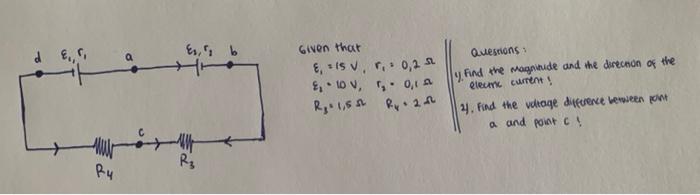 d ε₁, r₁ a ε₂, r₂ b
c
R₄ R₃
Given that
ε₁ = 15 V, r₁ = 0,2 Ω
ε₂ = 10 V, r₂ = 0,1 Ω
R₃ = 1,5 Ω R₄ = 2 Ω
Questions :
1). Find the magnitude and the direction of the
electric current !
2). Find the voltage difference between point
a and point c !